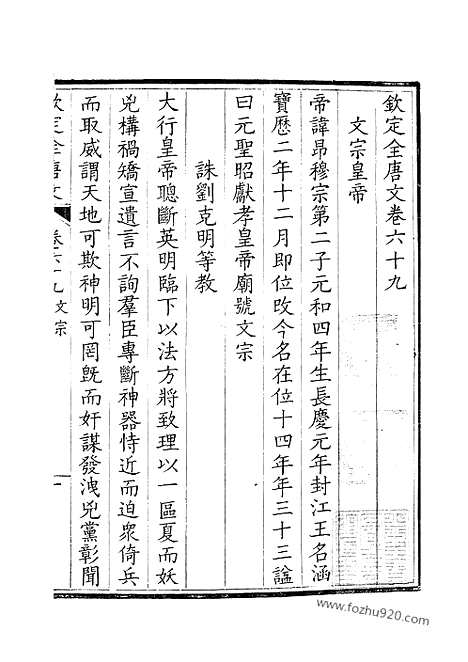 欽定全唐文卷六十九
文宗皇帝
帝諱昂穆宗第二子元和四年生長慶元年封江王名涵
寶歷二年十二月即位改今名在位十四年年三十三諡
曰元聖昭獻孝皇帝廟號文宗
誅劉克明等教
大行皇帝聰斷英明臨下以法方將致理以一區夏而妖
兇構禍矯宣遺言不詢羣臣專斷神器恃近而迫衆倚兵
而取威謂天地可欺神明可罔旣而奸謀發洩兇黨彰聞
欽定全唐文 卷六十九 文宗 一
www.fozhu920.com